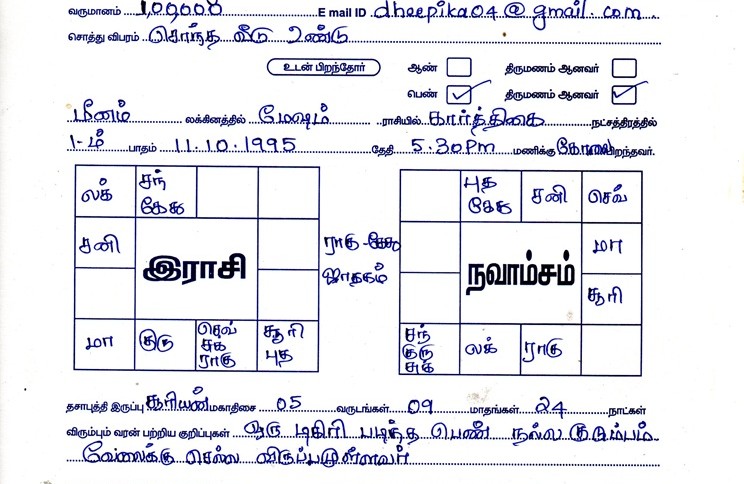 வருமானம் 1,00,000 E mail ID dheepika04@gmail.com.
சொத்து விபரம் சொந்த வீடு உண்டு
உடன் பிறந்தோர் ஆண் திருமணம் ஆனவர்
பெண் திருமணம் ஆனவர்
மீனம் லக்கினத்தில் மேஷம் ராசியில் கார்த்திகை நட்சத்திரத்தில்
1-ம் பாதம் 11.10.1995 தேதி 5.30Pm மணிக்கு கோவை பிறந்தவர்.
லக் சந் கேது
சனி
இராசி
மா குரு செவ் சுக் ராகு சூரி புத
ராகு-கேது
ஜாதகம்
புத கேது சனி செவ்
மா
நவாம்சம்
சூரி
சந் குரு சுக் லக் ராகு
தசாபுத்தி இருப்பு சூரியன் மகாதிசை 05 வருடங்கள் 09 மாதங்கள் 24 நாட்கள்
விரும்பும் வரன் பற்றிய குறிப்புகள் ஒரு டிகிரி படித்த பெண் நல்ல குடும்பம்
வேலைக்கு செல்ல விருப்பமுள்ளவர்